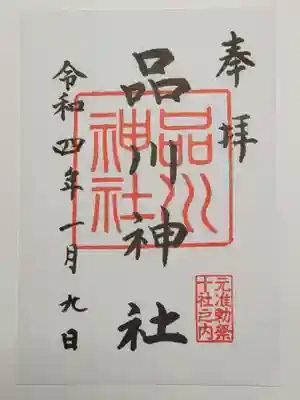 奉拝
品川神社
品川神社
元准勅祭
十社之内
令和四年一月九日